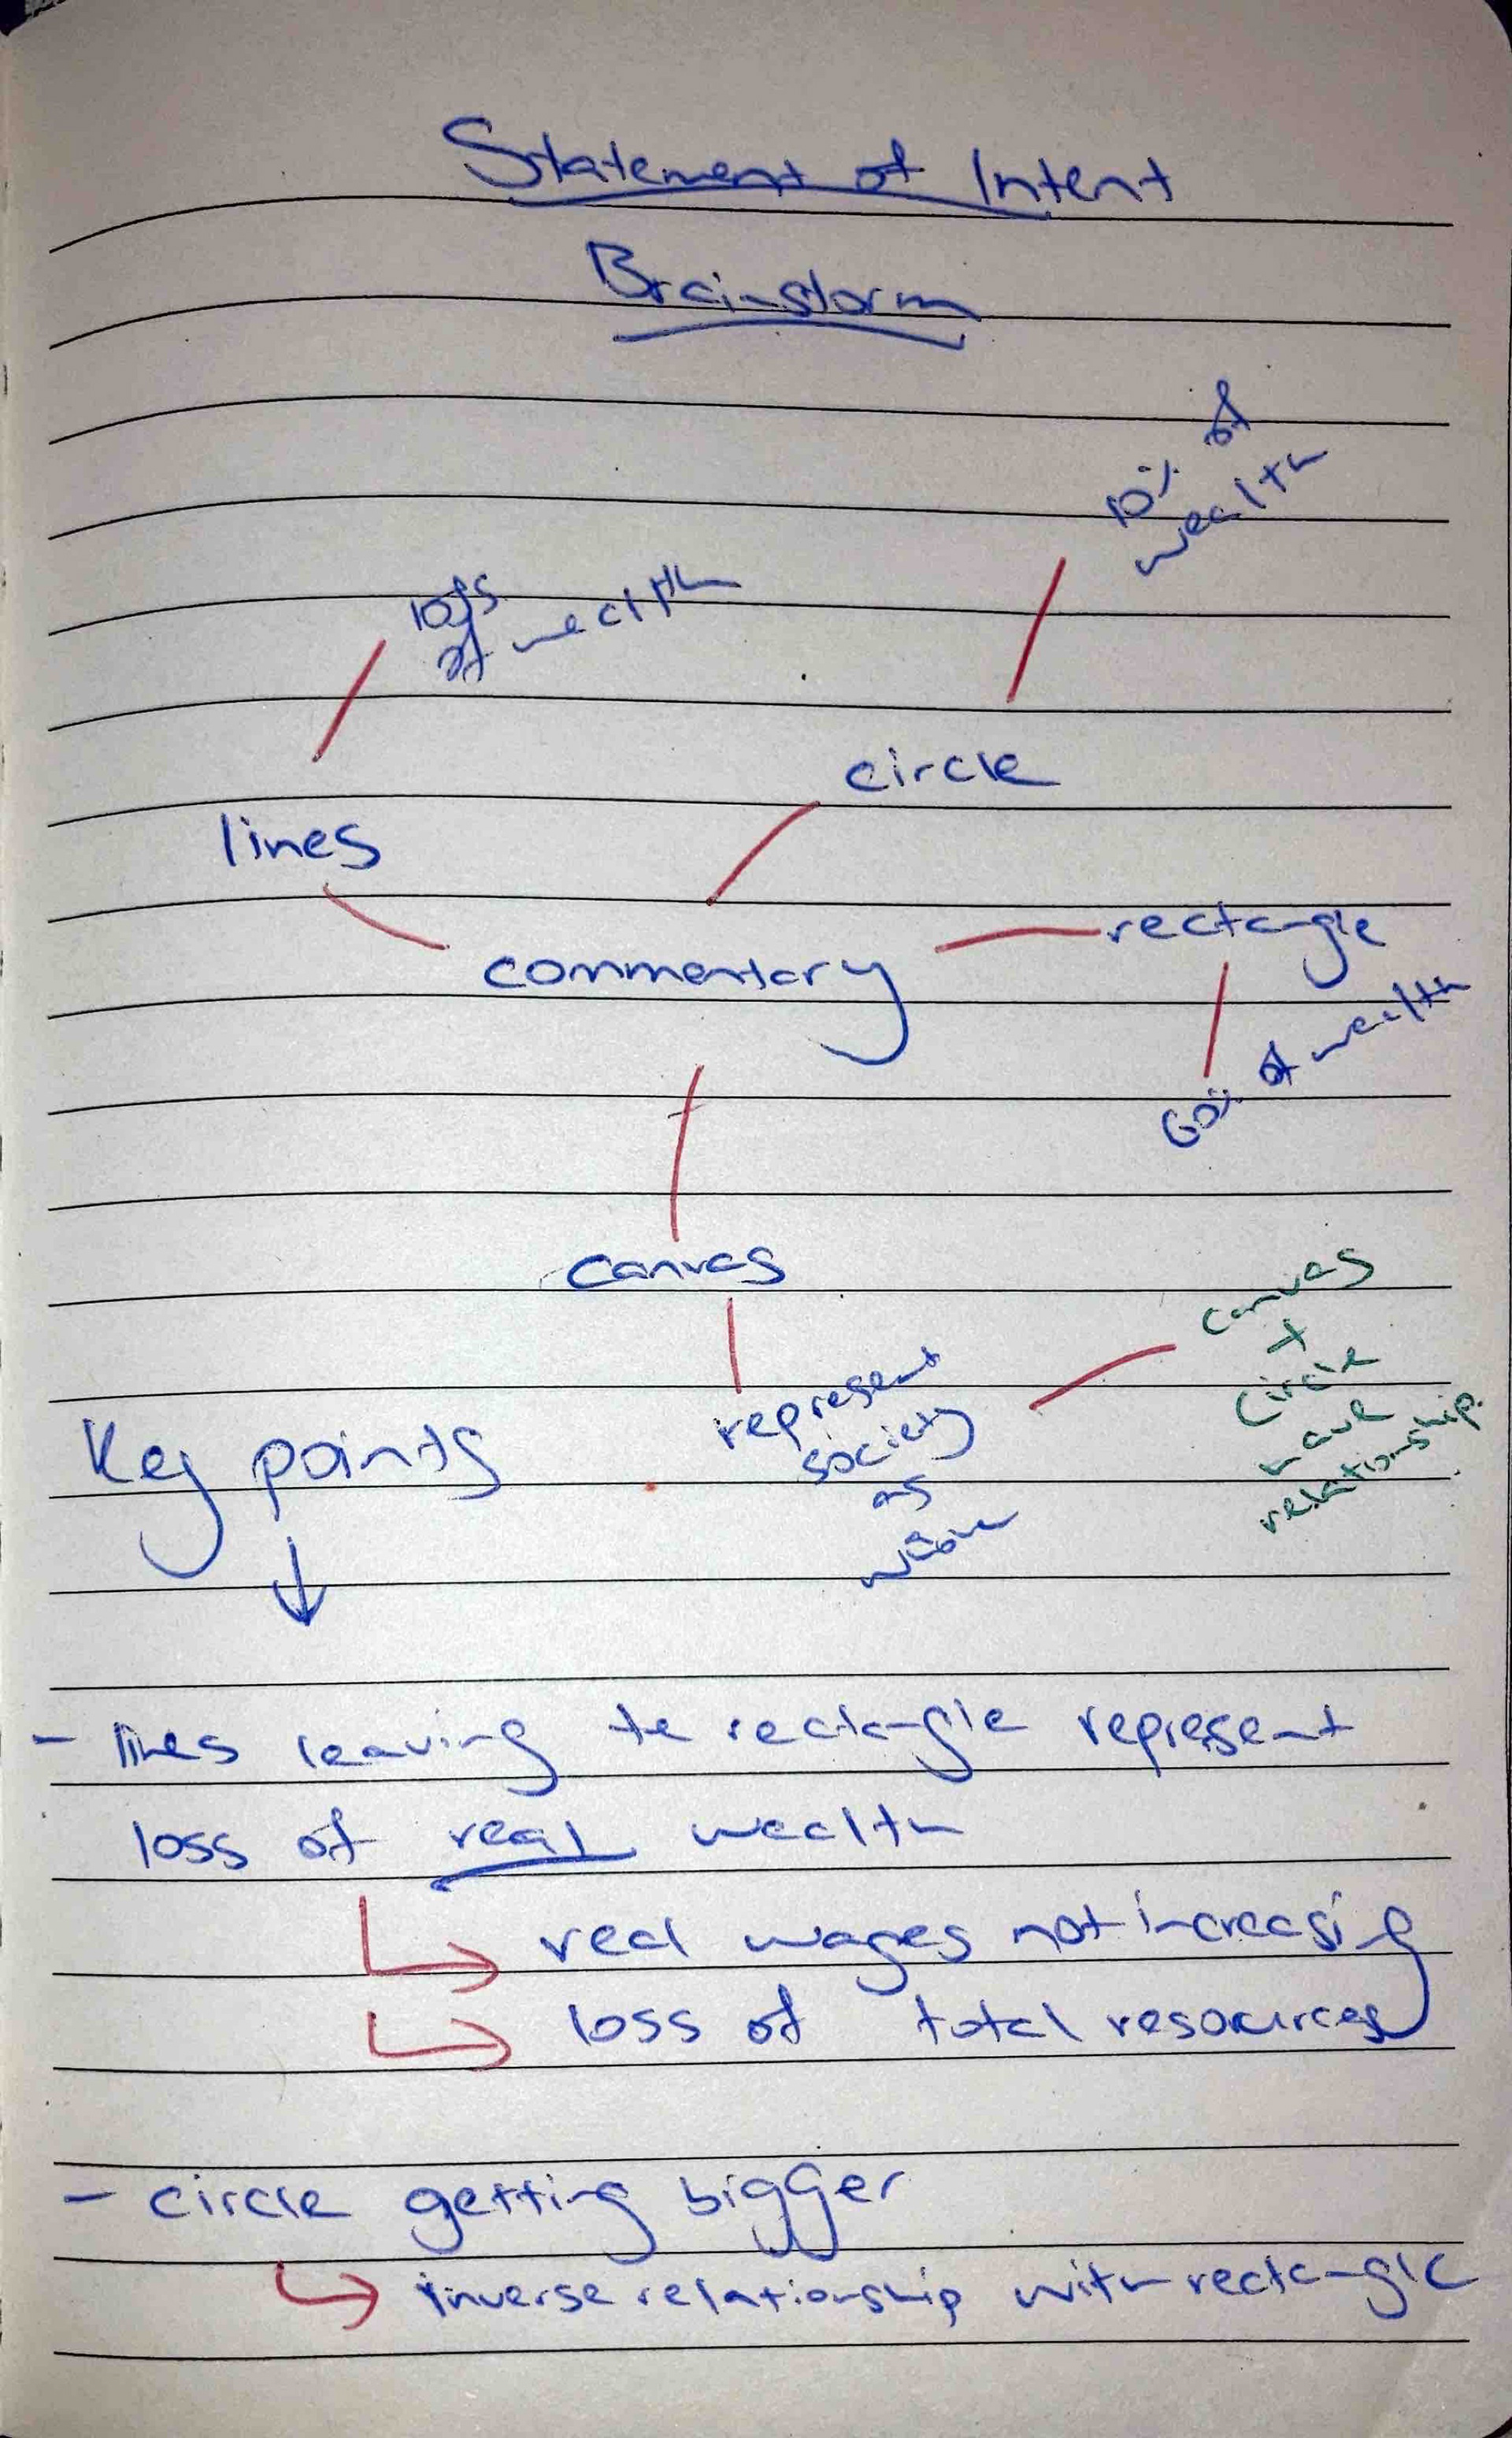 Statement of Intent
Brainstorm
10% of
wealth
loss
of wealth
circle
lines
rectangle
commentary
60% of wealth
canvas
canvas
+
circle
have
relationship.
represent
society
as
Key points
- lines leaving te rectangle represent
loss of real wealth
real wages not increasing
loss of total resources
- circle getting bigger
inverse relationship with rectangle